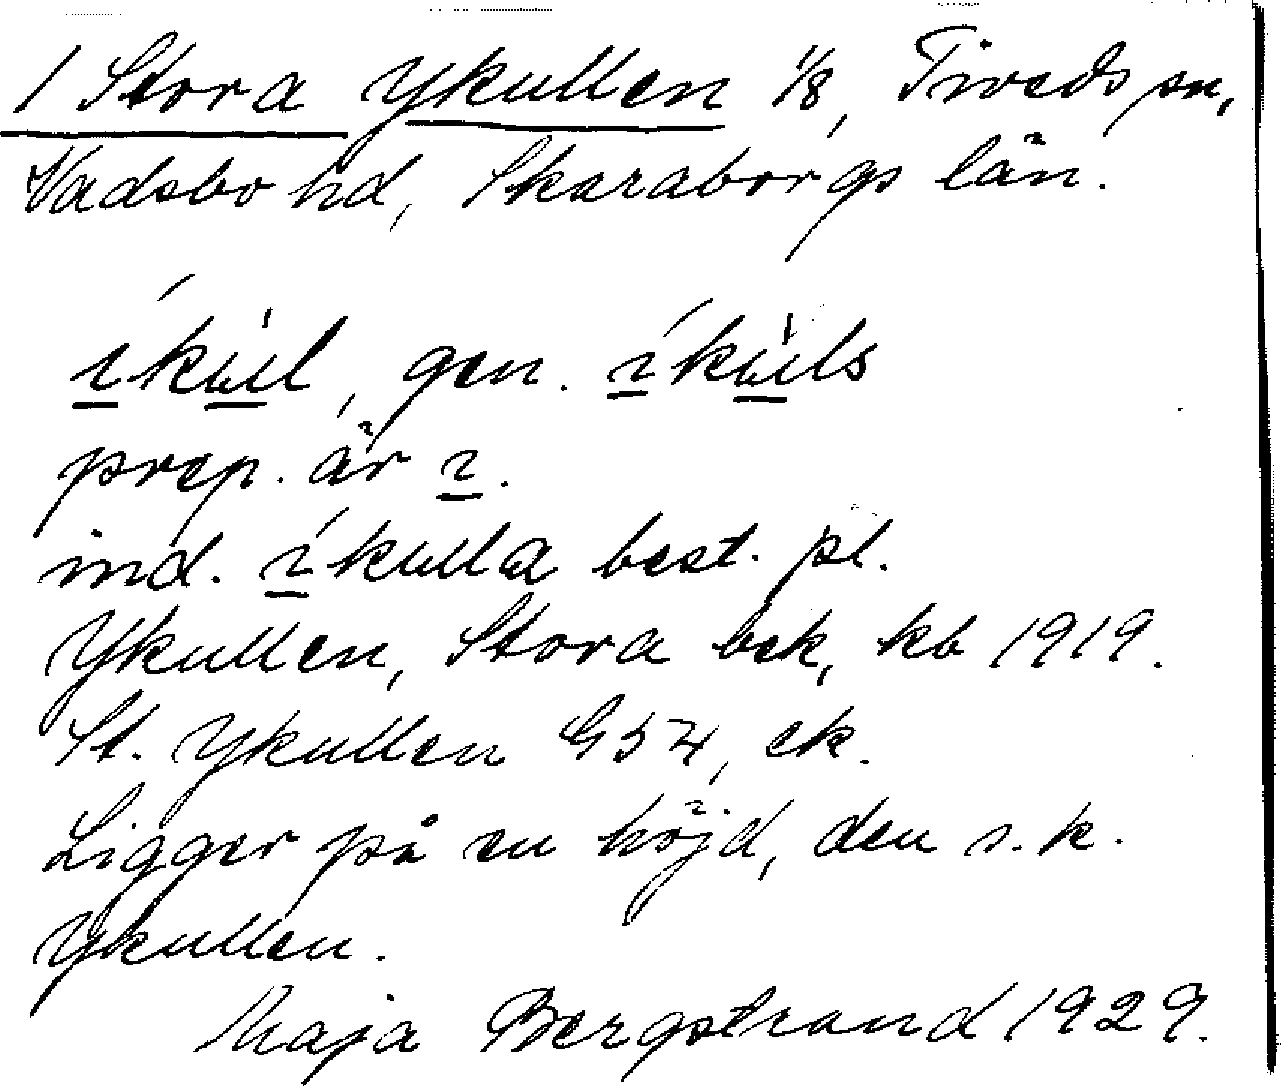 1 Stora Ykullen 1/8, Tiveds sn,
Vadsbo hd, Skaraborgs län.
íkùl, gen. íkùls
prep. är ı.
ind. íkulla best. pl.
Ykullen, Stora bek, kb 1919.
St. Ykullen G57, ek.
Ligger på en höjd, den s.k.
Ykullen.
Maja Bergstrand 1929.